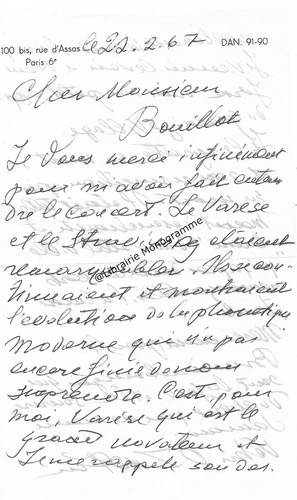 100 bis, rue d'Assas
Paris 6e
le 22. 2. 67
DAN. 91-90
Cher Monsieur
Bouillot
Je vous merci infiniment
pour m'avoir fait enten
dre le concert. Le Varèse
et le étaient
remarquables. Ils con
@Librairie Monogramme
tinuaient et montraient
l'évolution de la phonétique
moderne qui n'a pas
encore fini de nous
surprendre. C'est, pour
moi, Varèse qui est le
grand novateur et
Je me rappelle son